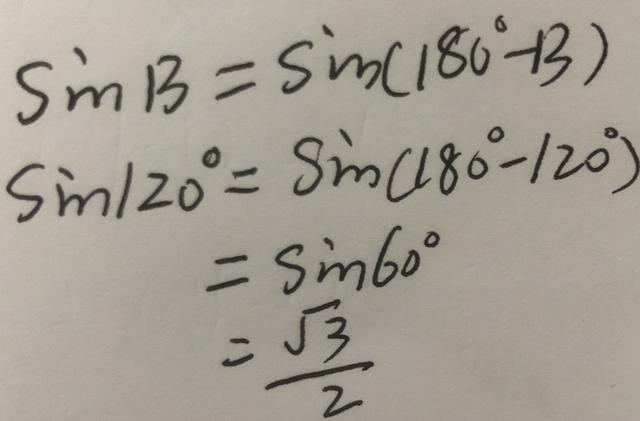 Sin B = Sin(180°-B)
Sin120° = Sin(180°-120°)
= Sin60°
= √3/2